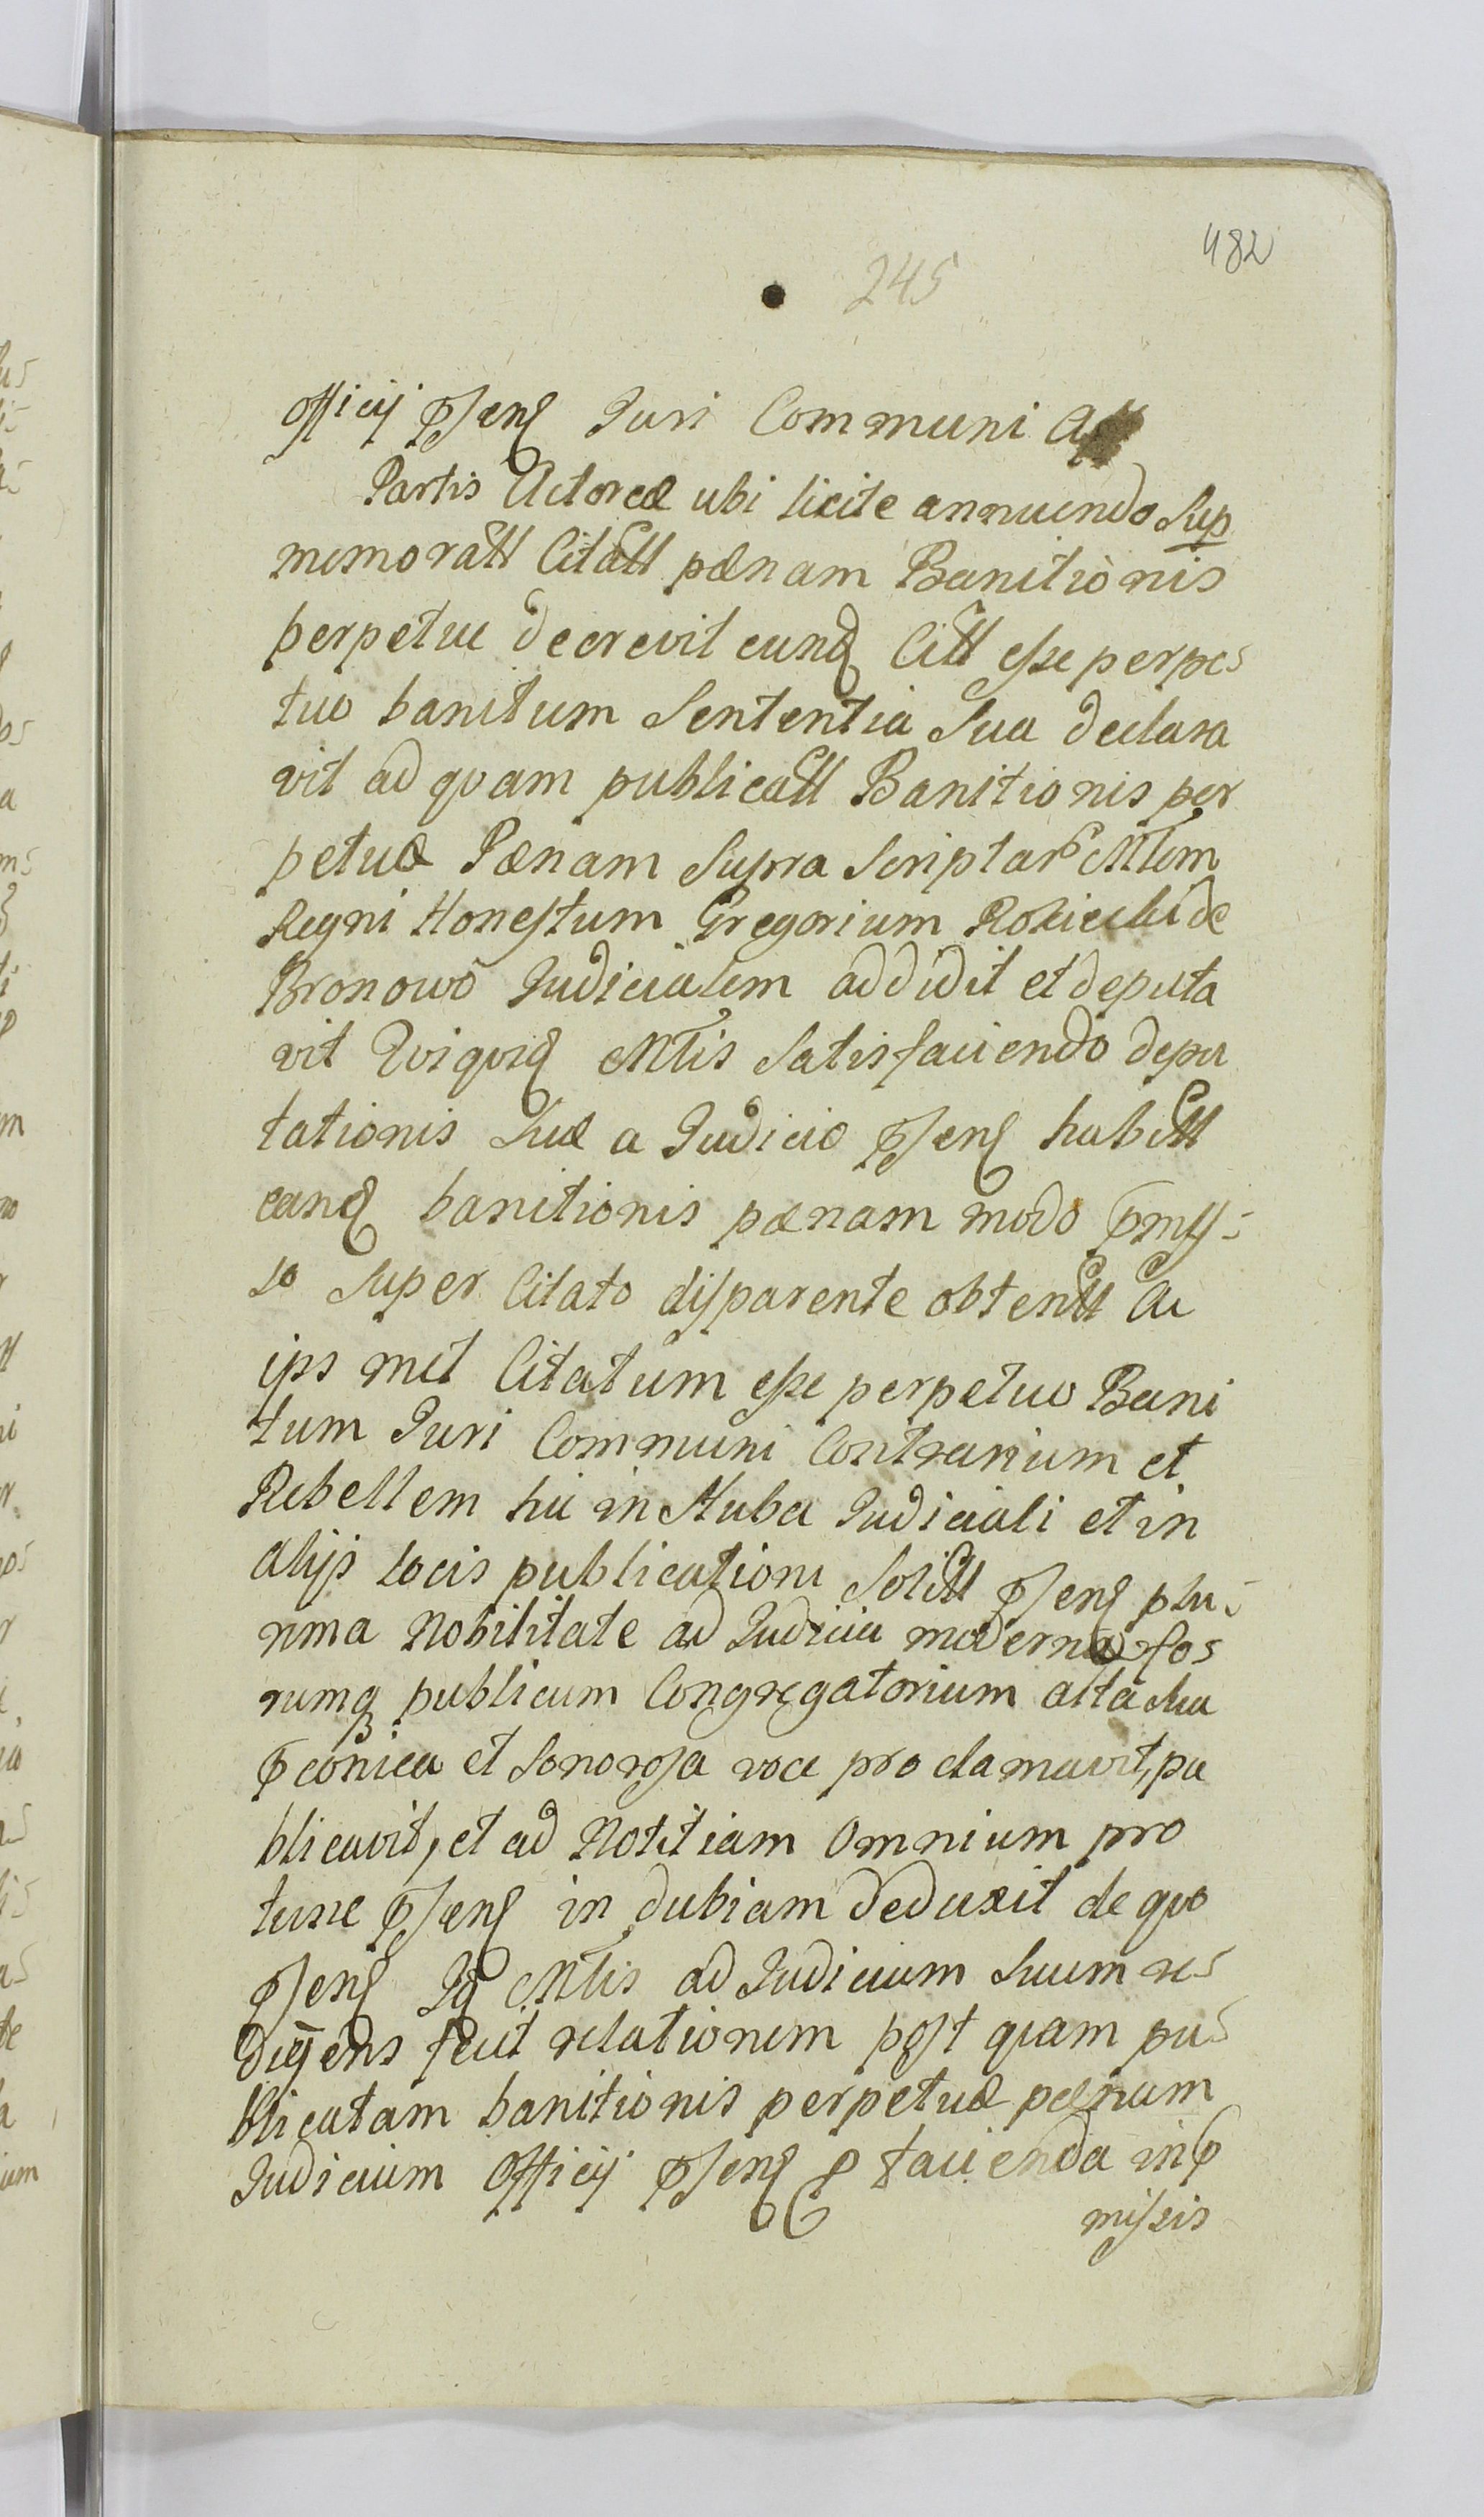 482
245
Officij pñseng Juri Communi
Partis Actoreæ ubi licite annuendo Sup
memoratt Citatt pænam Banitionis
perpetuæ decrevit eunq Citt esse perpe-
tuo banitum Sententia Sua declara
vit ad quam publicatt Banitionis per
petuæ Pænam Supra Scriptar Mlem
Regni Honestum Gregorium de
Bronowo Judicialem addidit et deputa
vit Quiquid Mlis Satisfaciendo depu
tationis Suæ a Judicio pñseng habitt
eanq banitionis pænam modo pmis-
so Super Citato disparente obtentt Ac
ips met Citatum esse perpetuo Bani
tum Juri Communi Contrarium et
Rebellem hic in Stuba Judiciali et in
alijs locis publicationi Solitt pñseng plu-
rima Nobilitate ad Judicia moderna fo-
rumq publicum Congregatorium alta Sua
pconica et Sonorosa voce proclamavit, pu
blicavit, et ad Notitiam Omnium pro
tunc pñseng in dubiam deduxit de quo
pñseng Iq Mlis ad Judicium Suum re-
digens fecit relationem post quam pu-
blicatam banitionis perpetuæ pænam
Judicium Officij pñseng p facienda inp
missis